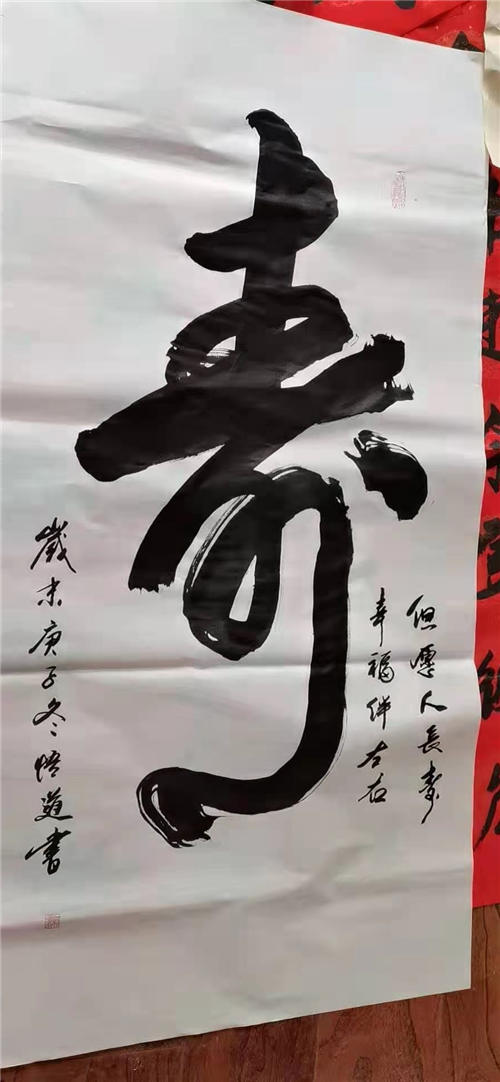 寿
但愿人長寿
幸福伴左右
歲末庚子冬悟道書